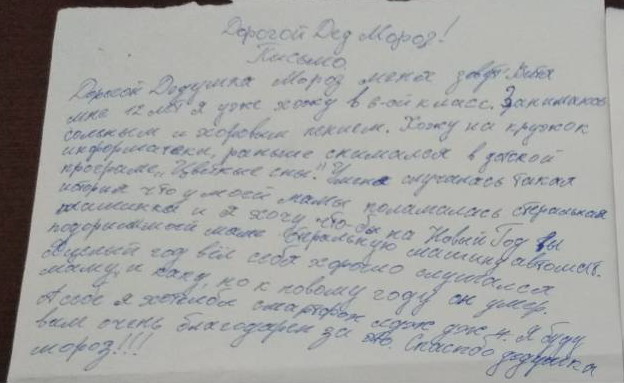 Дорогой Дед Мороз!
Письмо
Дорогой Дедушка Мороз меня зовут Витя
мне 12 лет я уже хожу в 6-ой класс. Занимаюсь
сольным и хоровым пением. Хожу на кружок
информатеки, раньше снимался в детской
програме "Цветные сны". У меня случилась такая
история что у моей мамы поламалась стиральная
машинка и я хочу что-бы на Новый Год вы
подорили моей маме стиральную машину автомат.
Я целый год вёл себя хорошо слушался
маму, и папу, но к новому году он умер.
А себе я хотел бы смартфон лдж 4. Я буду
вам очень благодарен за это. Спасибо дедушка
мороз!!!